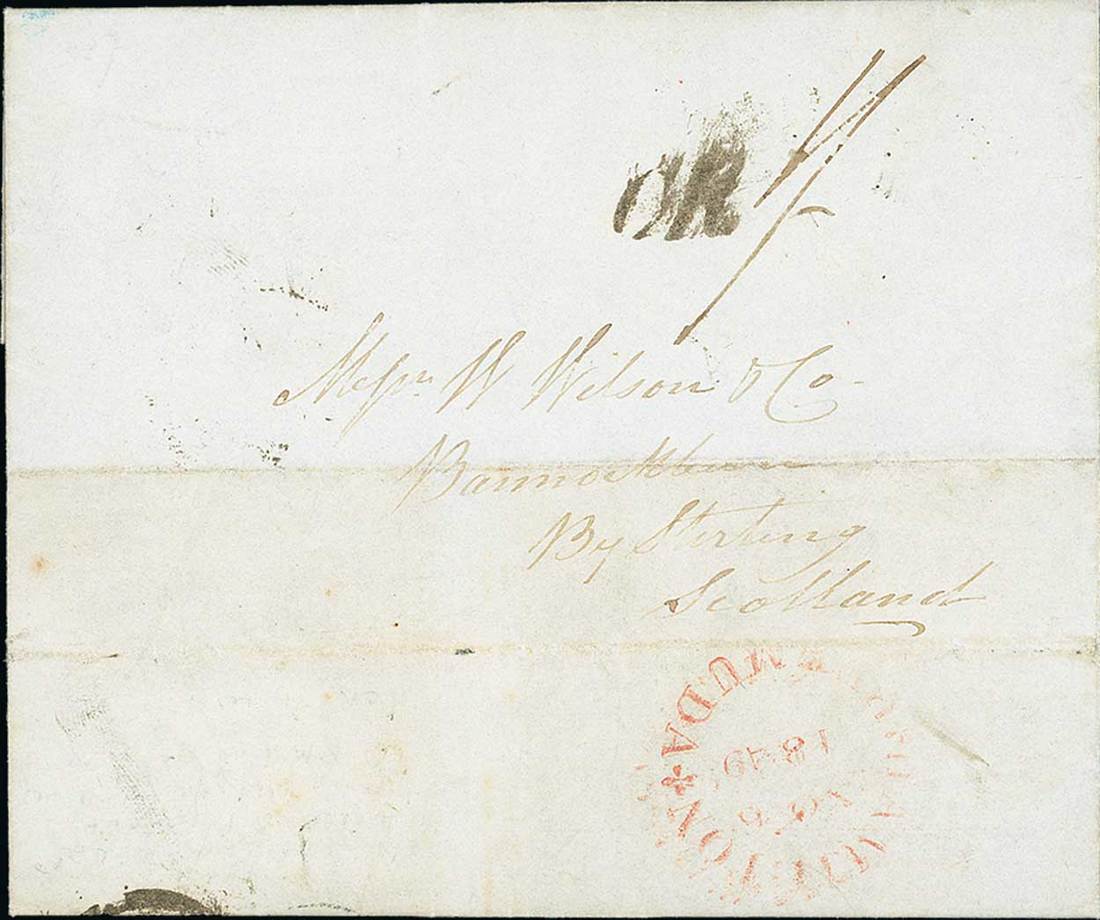 1/
Messrs. W Wilson & Co
Bannockburn
By Sterling
Scotland
HAMILTON ✤ BERMUDA
1849